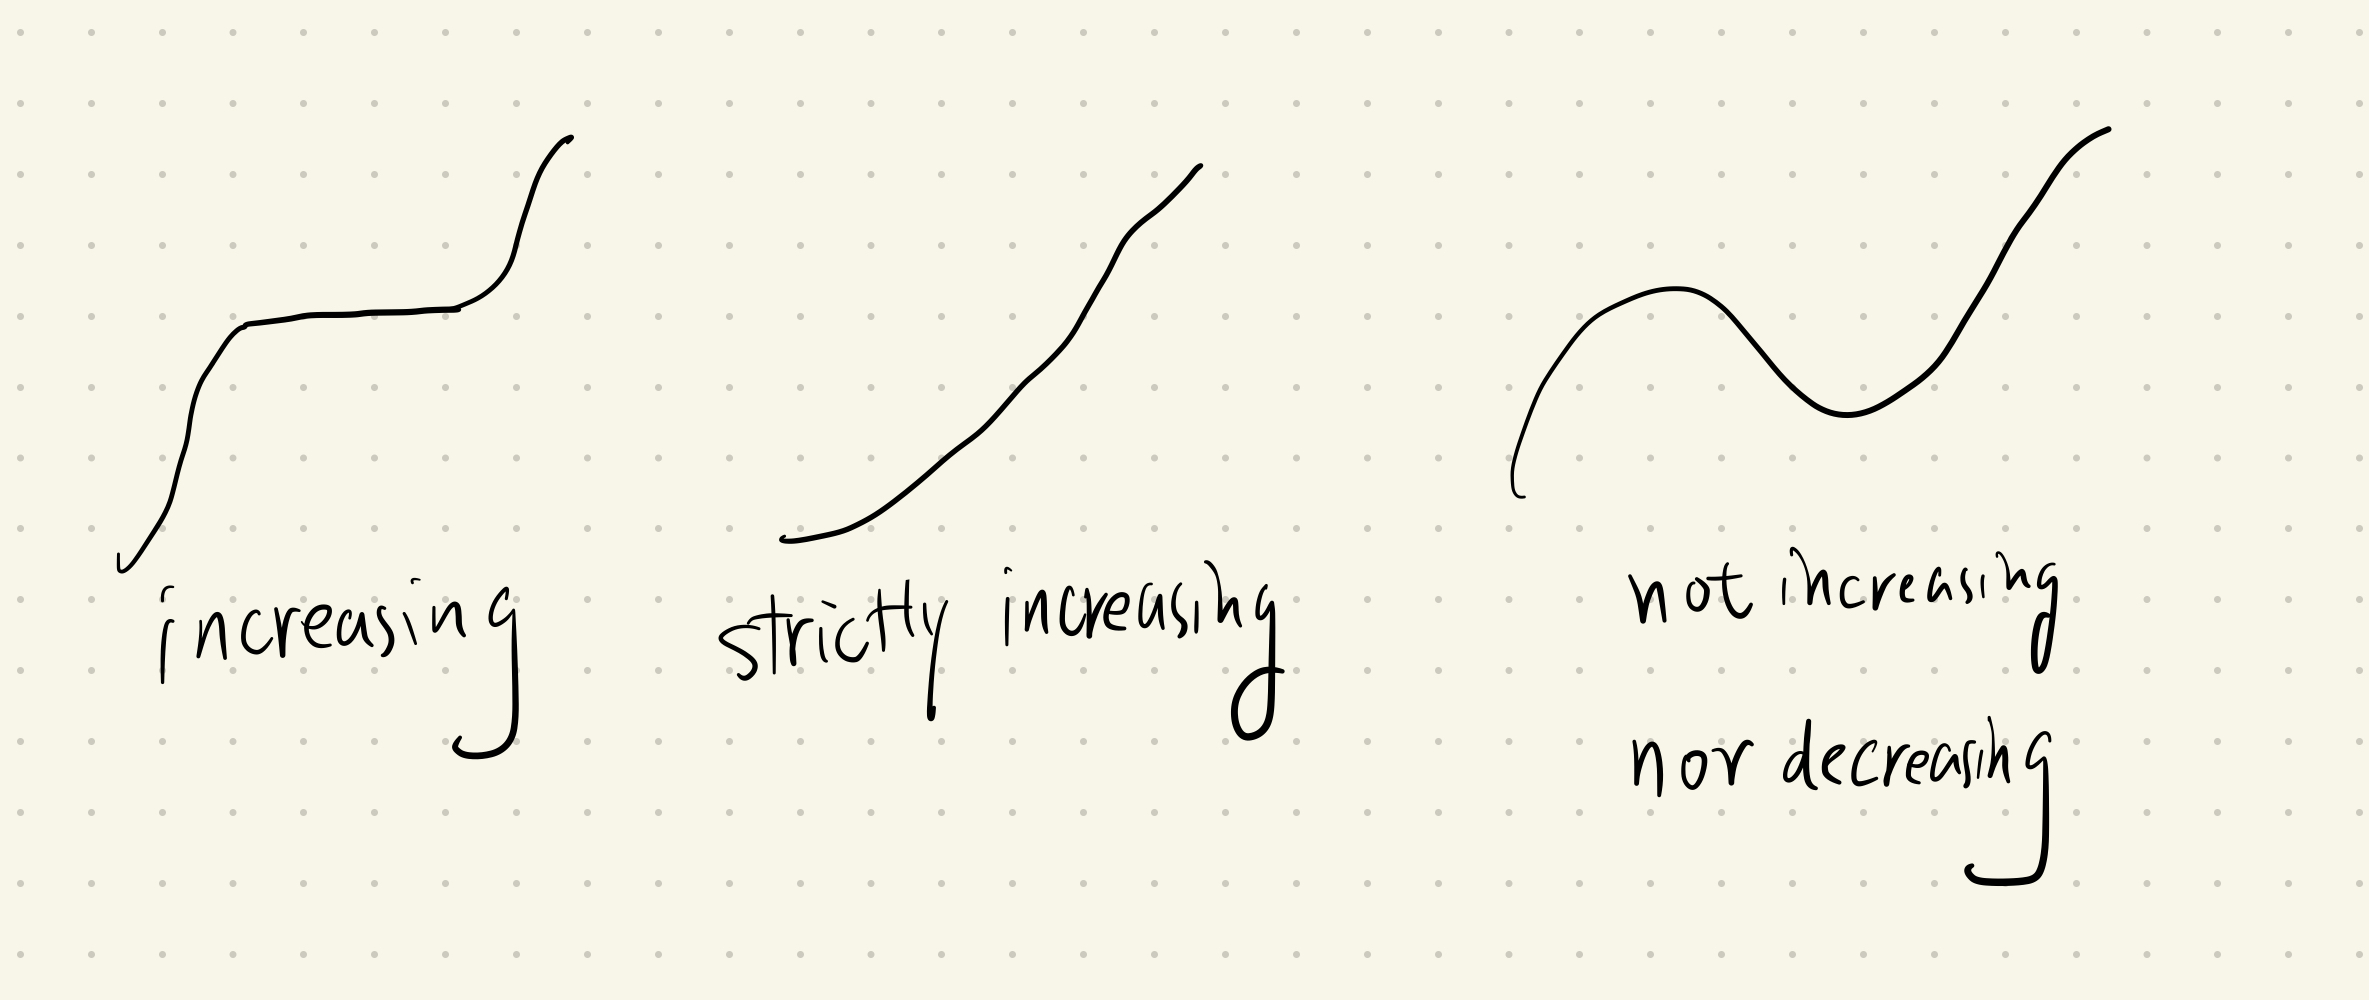 increasing
strictly increasing
not increasing
nor decreasing